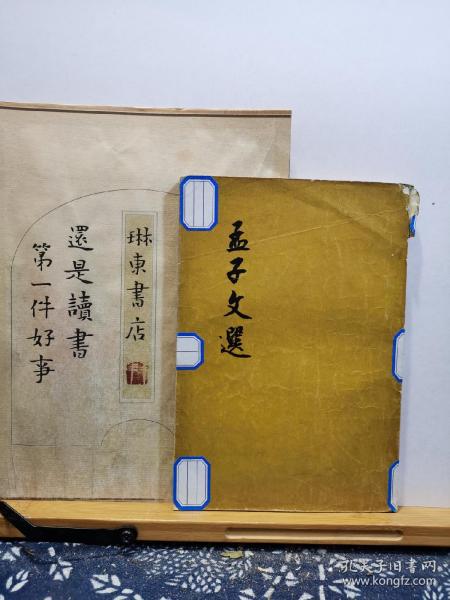 琳東書店
還是讀書
第一件好事
孟子文選
孔夫子旧书网
kongfz.com